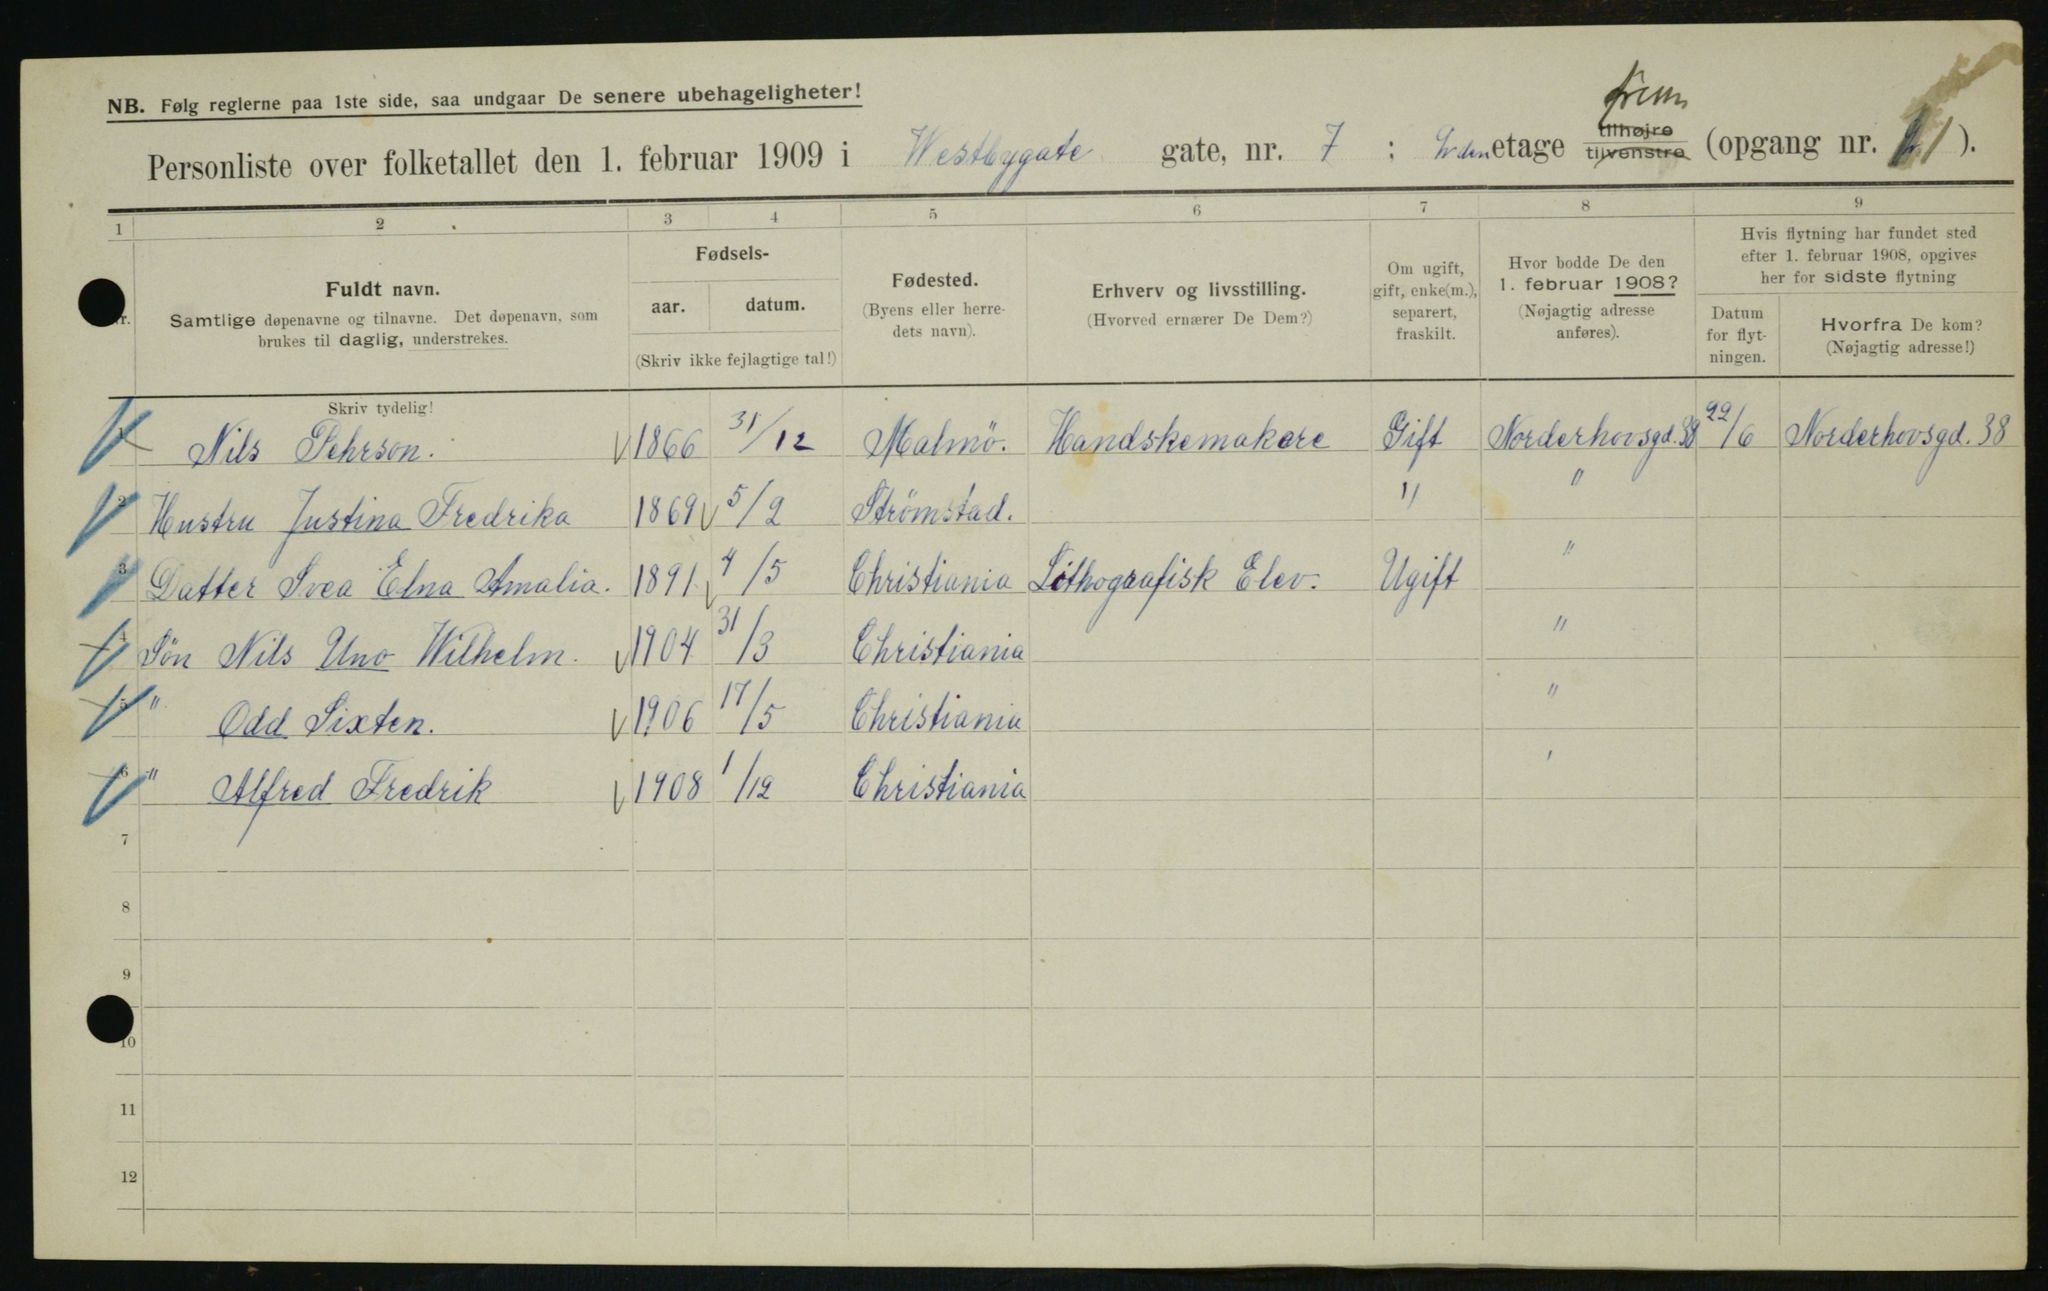 NB. Følg reglerne paa 1ste side, saa undgaar De senere ubehageligheter!
frem
Personliste over folketallet den 1. februar 1909 i Westbygate gate, nr. 7 ; etage tilhøjre tilvenstre (opgang nr. 1).
1 2 3 4 5 6 7 8 9
Nr.
Fuldt navn.
Samtlige døpenavne og tilnavne. Det døpenavn, som
brukes til daglig, understrekes.
Skriv tydelig!
Fødsels-
aar. datum.
(Skriv ikke fejlagtige tal!)
Fødested.
(Byens eller herre-
dets navn).
Erhverv og livsstilling.
(Hvorved ernærer De Dem?)
Om ugift,
gift, enke(m.),
separert,
fraskilt.
Hvor bodde De den
1. februar 1908?
(Nøjagtig adresse
anføres).
Hvis flytning har fundet sted
efter 1. februar 1908, opgives
her for sidste flytning
Datum
for flyt-
ningen.
Hvorfra De kom?
(Nøjagtig adresse!)
1 Nils Pehrson. 1866 31/12 Malmö. Handskemakere Gift Norderhovsgd. 38 22/6 Norderhovsgd. 38
2 Hustru Justina Fredrika 1869 5/2 Strømstad. " "
3 Datter Svea Elna Amalia. 1891 4/5 Christiania Lithografisk Elev. Ugift "
4 Sön Nils Uno Wilhelm. 1904 31/3 Christiania "
5 " Odd Sixten. 1906 17/5 Christiania "
6 " Alfred Fredrik 1908 1/12 Christiania '
7
8
9
10
11
12